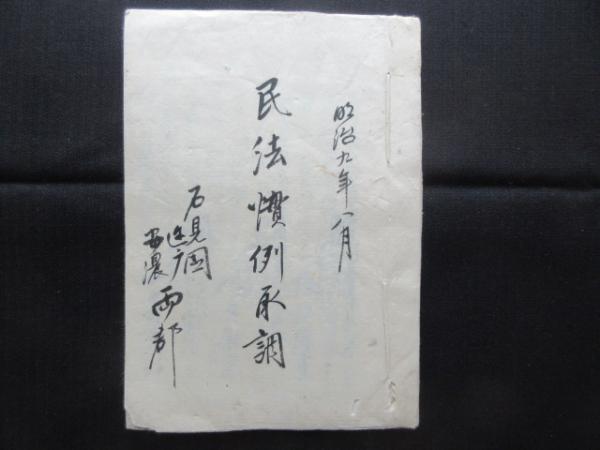 明治九年八月
民法慣例取調
石見国
迩广
安濃
両郡